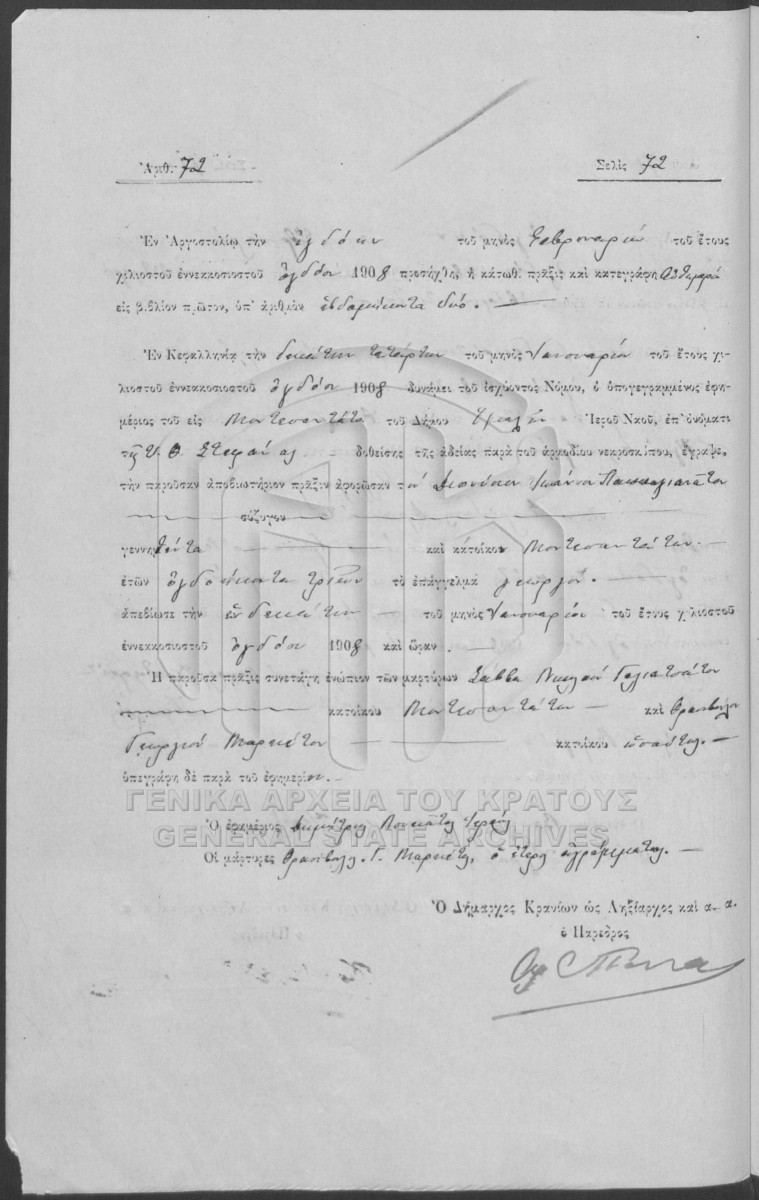 Ἀριθ. 72 Σελὶς 72
Ἐν Ἀργοστολίῳ τὴν ὀγδόην τοῦ μηνὸς Φεβρουαρίου τοῦ ἔτους
χιλιοστοῦ ἐννεακοσιοστοῦ ὀγδόου 1908 προσήχθη, ἡ κάτωθ. πρᾶξις καὶ κατεγράφη αὐθημερὸν
εἰς βιβλίον πρῶτον, ὑπ' ἀριθμὸν ἑβδομήκοντα δύο. —
Ἐν Κεφαλληνίᾳ τὴν δεκάτην τετάρτην τοῦ μηνὸς Ἰανουαρίου τοῦ ἔτους χι-
λιοστοῦ ἐννεακοσιοστοῦ ὀγδόου 1908 δυνάμει τοῦ ἰσχύοντος Νόμου, ὁ ὑπογεγραμμένος ἐφη-
μέριος τοῦ εἰς Μοντεσαντάτα τοῦ Δήμου Ἱεροῦ Ναοῦ, ἐπ' ὀνόματι
δοθείσης τῆς ἀδείας παρὰ τοῦ ἁρμοδίου νεκροσκόπου, ἔγραψε,
τὴν παροῦσαν ἀποβιωτήριον πρᾶξιν ἀφορῶσαν τὸν Διονύσιον Ἰωάννου
σύζυγον
γεννηθέντα — καὶ κάτοικον Μοντεσαντάτων —
ἐτῶν ὀγδοήκοντα τριῶν τὸ ἐπάγγελμα γεωργόν. —
ἀπεβίωσε τὴν ἑνδεκάτην — τοῦ μηνὸς Ἰανουαρίου τοῦ ἔτους χιλιοστοῦ
ἐννεακοσιοστοῦ ὀγδόου 1908 καὶ ὥραν. —
Ἡ παροῦσα πρᾶξις συνετάγη ἐνώπιον τῶν μαρτύρων Σάββα Νικολάου Γαλιατσάτου
κατοίκου Μοντεσαντάτων — καὶ Θρασύβουλου
Γεωργίου Μαρκέτου — κατοίκου ὡσαύτως. —
ὑπεγράφη δὲ παρὰ τοῦ ἐφημερίου. —
ΓΕΝΙΚΑ ΑΡΧΕΙΑ ΤΟΥ ΚΡΑΤΟΥΣ
Ὁ ἐφημέριος Δημήτριος Λουκάτος Ἱερεύς
GENERAL STATE ARCHIVES
Οἱ μάρτυρες Θρασύβουλος Γ. Μαρκέτος, ὁ ἕτερος ἀγράμματος. —
Ὁ Δήμαρχος Κρανίων ὡς Ληξίαρχος καὶ α. α.
ὁ Πάρεδρος